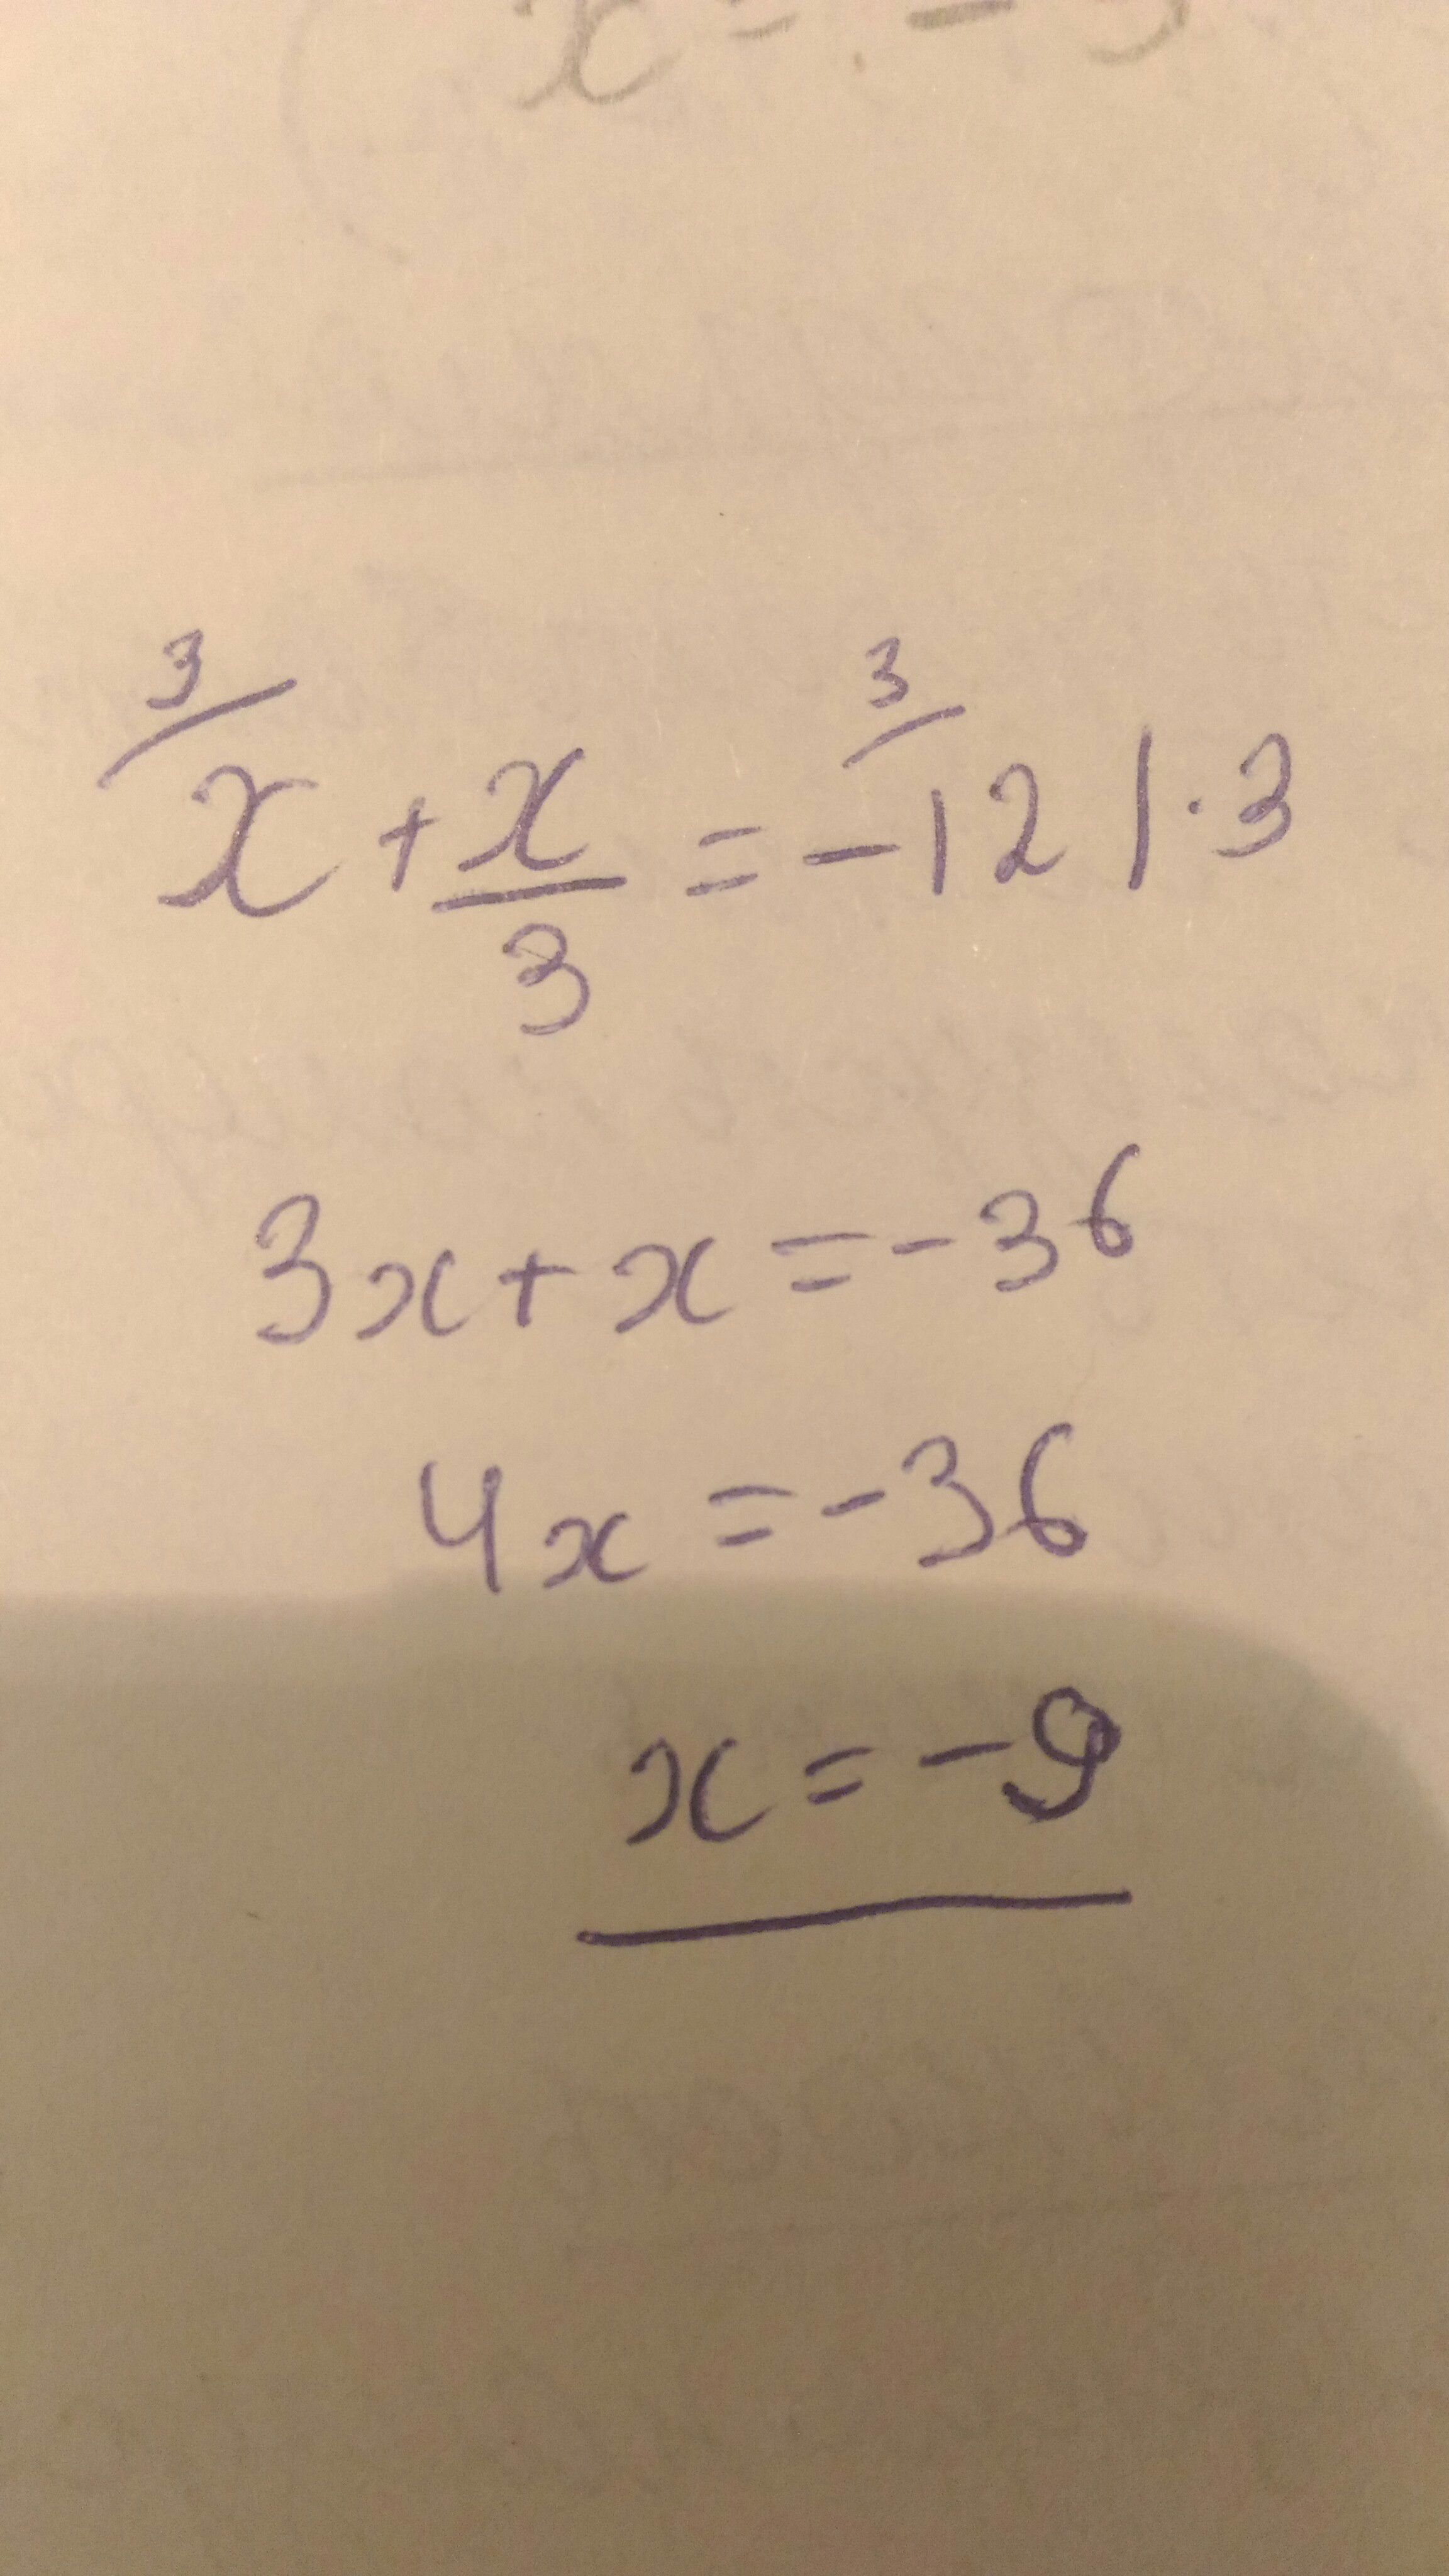 x = -
3 3
x + x/3 = -12 | · 3
3x + x = -36
4x = -36
x = -9